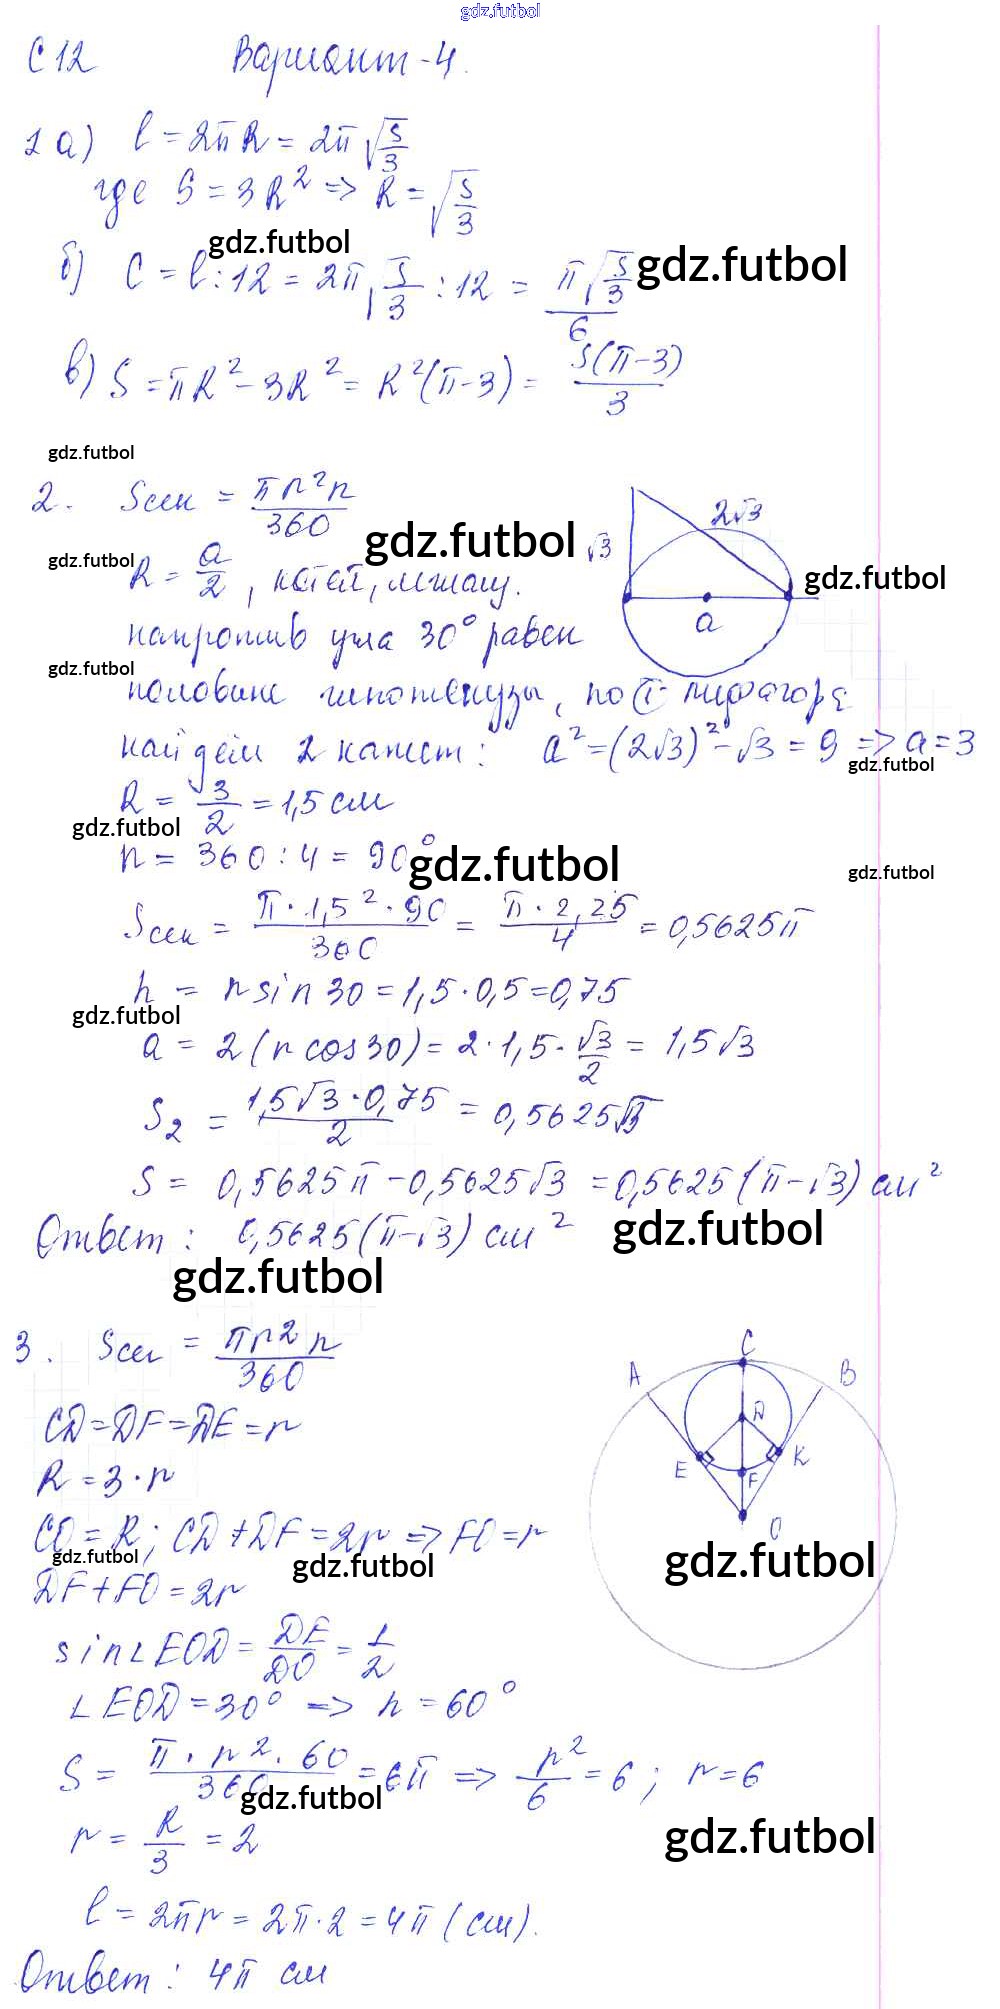 gdz.futbol
С 12 Вариант-4.
1 а) l = 2πR = 2π√(S/3)
где S = 3R² => R = √(S/3)
gdz.futbol
б) C = l : 12 = 2π√(S/3) : 12 = π√(S/3)/6
gdz.futbol
в) S = πR² - 3R² = R²(π-3) = S(π-3)/3
gdz.futbol
2. Sсек = πr²n/360
2√3
√3
a
gdz.futbol
gdz.futbol
gdz.futbol
R = a/2, катет, лежащ.
напротив угла 30° равен
gdz.futbol
половине гипотенузы, по т. Пифагора
найдем 2 катет: a² = (2√3)² - √3 = 9 => a = 3
gdz.futbol
R = 3/2 = 1,5 см
gdz.futbol
n = 360 : 4 = 90°
gdz.futbol
gdz.futbol
Sсек = π · 1,5² · 90/360 = π · 2,25/4 = 0,5625π
h = r sin 30 = 1,5 · 0,5 = 0,75
gdz.futbol
a = 2(r cos 30) = 2 · 1,5 · √3/2 = 1,5√3
S₂ = 1,5√3 · 0,75/2 = 0,5625√3
S = 0,5625π - 0,5625√3 = 0,5625(π-√3) см²
Ответ: 0,5625(π-√3) см²
gdz.futbol
gdz.futbol
3. Sсек = πr²n/360
A
C
B
D
E
F
K
O
CD = DF = DE = r
R = 3 · r
CO = R; CD + DF = 2r => FO = r
gdz.futbol
gdz.futbol
gdz.futbol
DF + FO = 2r
sin∠EOD = DE/DO = 1/2
∠EOD = 30° => n = 60°
S = π · r² · 60/360 = 6π => r²/6 = 6; r = 6
gdz.futbol
r = R/3 = 2
gdz.futbol
l = 2πr = 2π · 2 = 4π (см).
Ответ: 4π см